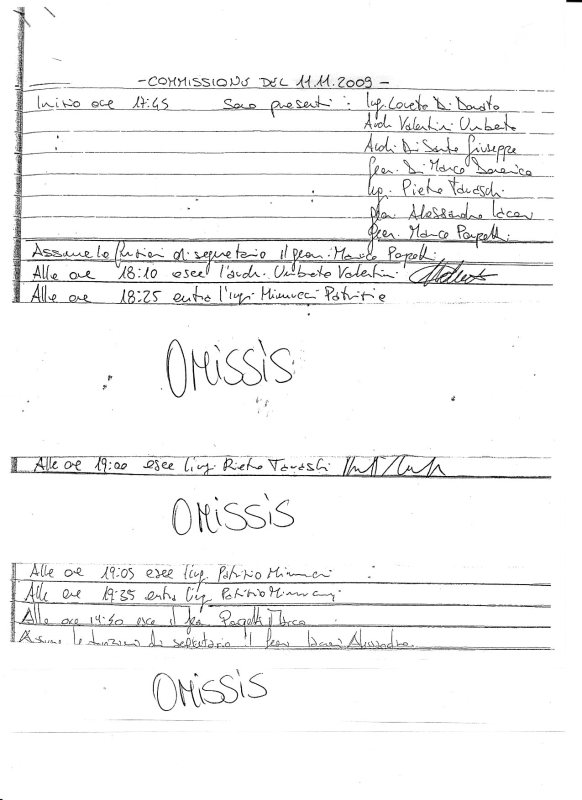 - COMMISSIONE DEL 11.11.2009 -
Inizio ore 17:45 Sono presenti: Ing. Loreto Di Donato
Arch. Valentini Umberto
Arch. Di Sante Giuseppe
Geom. Di Marco Domenico
Ing. Pietro
Geom. Alessandro
Geom. Marco
Assume le funzioni di segretario il geom. Marco
Alle ore 18:10 esce l'arch. Umberto Valentini
Alle ore 18:25 entra l'ing. Minnucci Patrizio
OMISSIS
Alle ore 19:00 esce l'ing. Pietro
OMISSIS
Alle ore 19:05 esce l'ing. Patrizio Minnucci
Alle ore 19:35 entra l'ing. Patrizio Minnucci
Alle ore esce il geom.
Assume le funzioni di segretario il geom. Alessandro.
OMISSIS